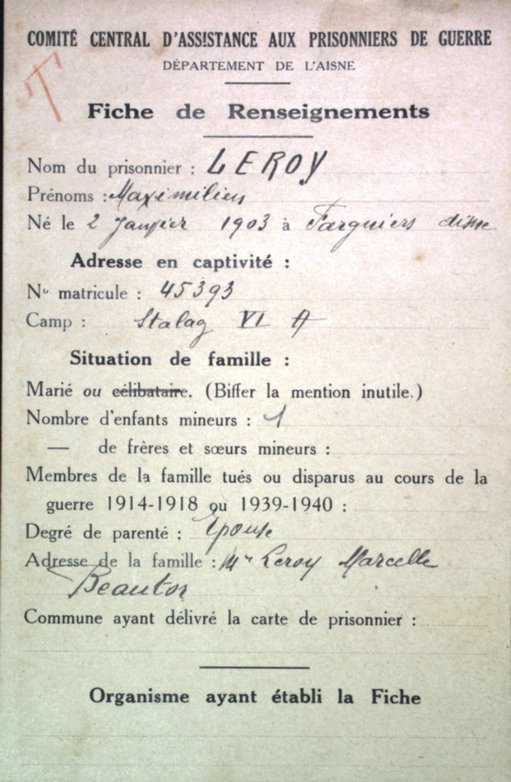 COMITÉ CENTRAL D'ASSISTANCE AUX PRISONNIERS DE GUERRE
DÉPARTEMENT DE L'AISNE
T
Fiche de Renseignements
Nom du prisonnier : LEROY
Prénoms : Maximilien
Né le 2 Janvier 1903 à Farguiers Aisne
Adresse en captivité :
No matricule : 45393
Camp : Stalag VI A
Situation de famille :
Marié ou célibataire. (Biffer la mention inutile.)
Nombre d'enfants mineurs : 1
— de frères et sœurs mineurs :
Membres de la famille tués ou disparus au cours de la
guerre 1914-1918 ou 1939-1940 :
Degré de parenté : Epouse
Adresse de la famille : Me Leroy Marcelle
Beautor
Commune ayant délivré la carte de prisonnier :
Organisme ayant établi la Fiche